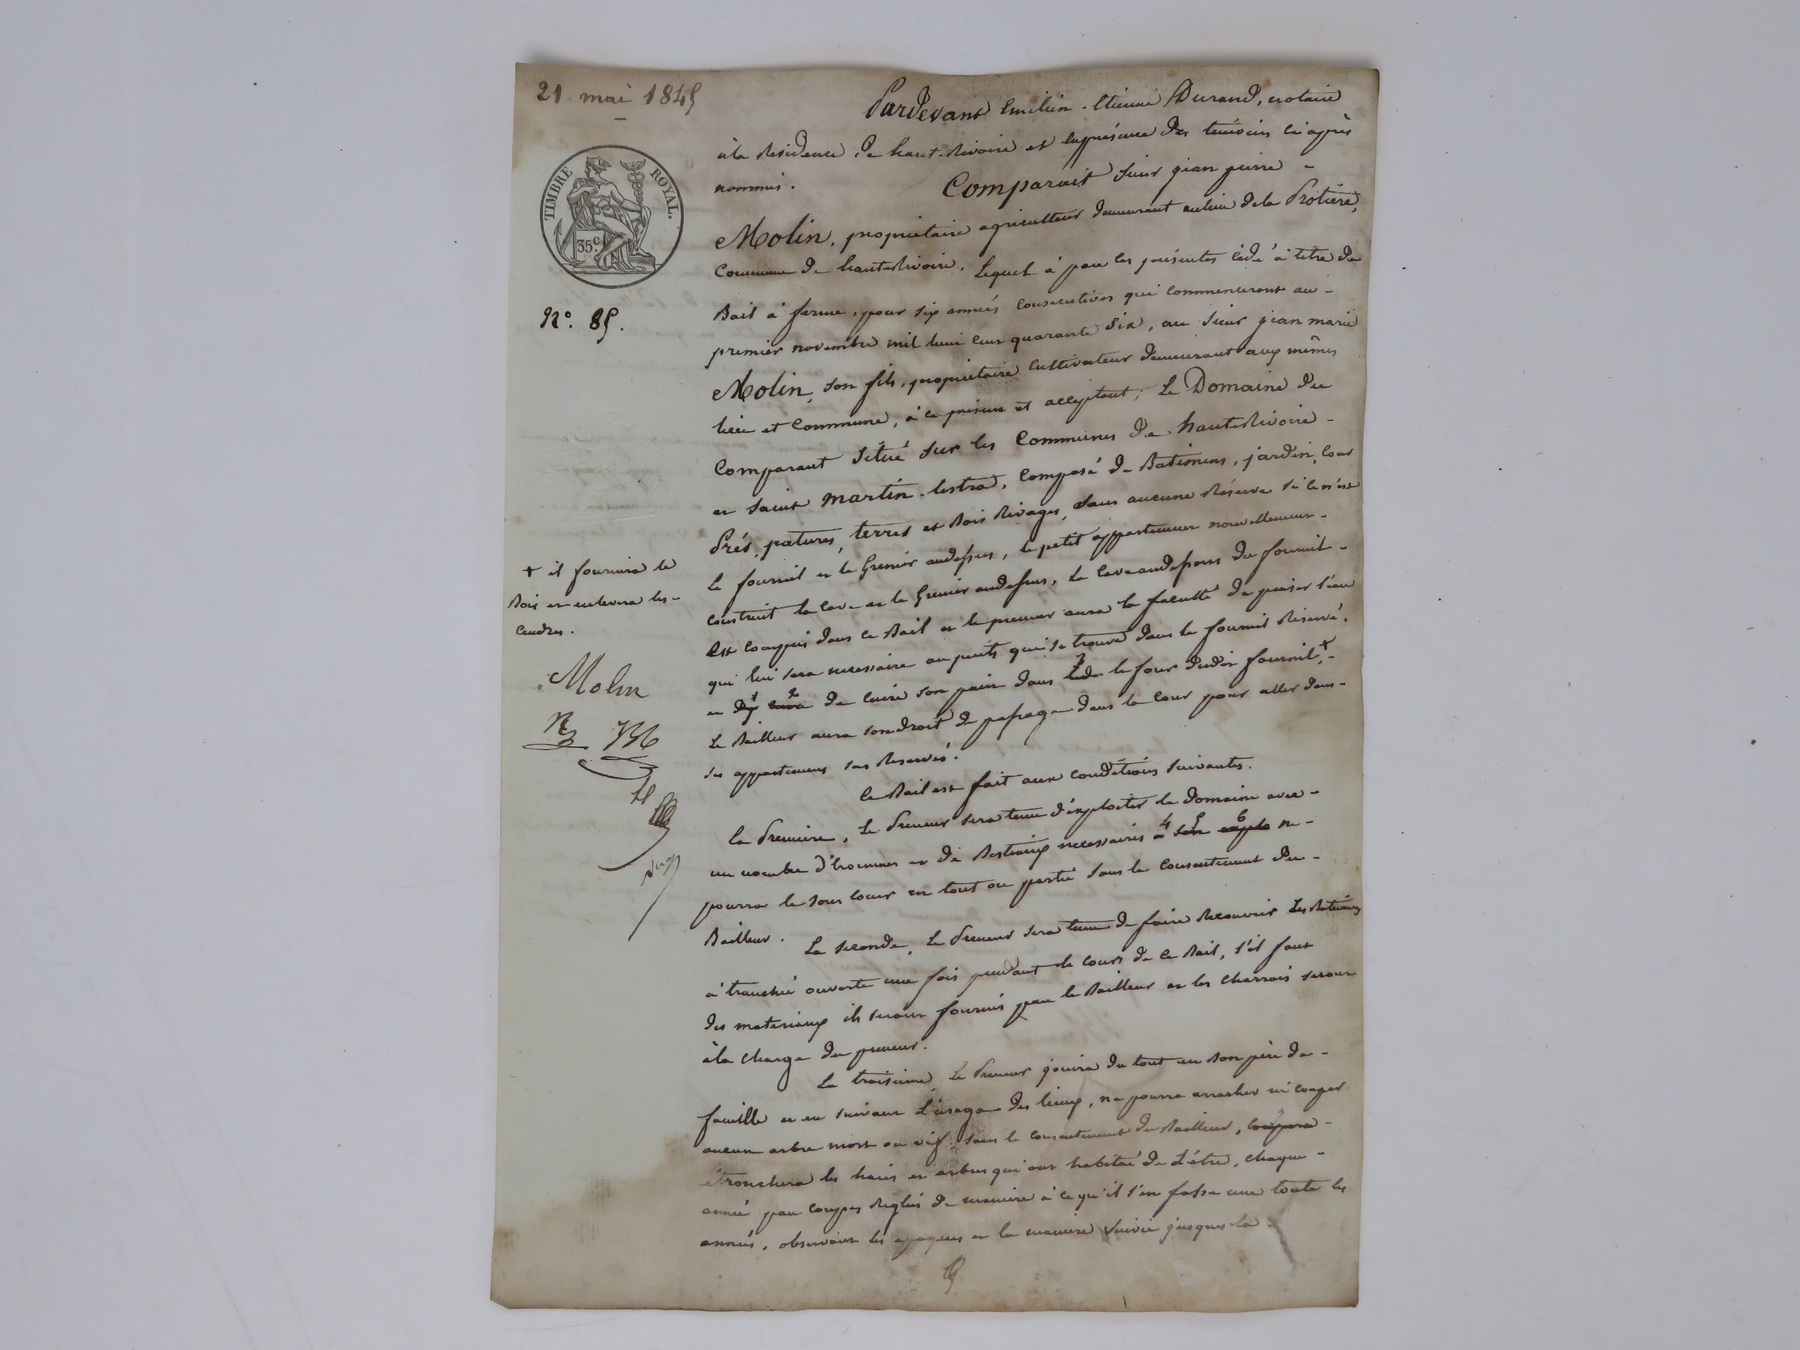 21 mai 1845
TIMBRE ROYAL.
35c.
N°. 85.
Pardevant Emilien-Etienne Durand, notaire
à la Residence de haut-Rivoire et en présence des témoins ci après
nommés. Comparait sieur jean pierre
Molin, propriétaire agriculteur demeurant au lieu de la Protière,
Commune de hauteRivoire. Lequel à par les présentes cédé à titre de
Bail à ferme, pour six années consecutives qui commenceront au
premier novembre mil huit cent quarante six, au sieur jean marie
Molin, son fils, propriétaire cultivateur demeurant aux mêmes
lieu et Commune, à ce présent et acceptant; Le Domaine du
Comparant situé sur les Communes de hauteRivoire
et saint martin-lestra, composé de Batimens, jardin, cour
Prés, patures, terres et Bois Rivages, sans aucune Réserve si ce n'est
le fournil et le Grenier audessus, le petit appartement nouvellement
construit la cave et le Grenier audessus, La cave audessous du fournil
est compris dans ce Bail et le preneur aura la faculté de puiser l'eau
qui lui sera necessaire au puits qui se trouve dans le fournil Réservé,
et de cuire son pain dans le four dudit fournil, +
Le Bailleur aura son droit de passage dans la cour pour aller dans
ses appartemens sus Reservés.
+ il fournira le
Bois et enlevera les
Cendres.
Molin
Ce Bail est fait aux conditions suivantes.
La Premiere, Le Preneur sera tenu d'exploiter le domaine avec
un nombre d'hommes et de Bestiaux necessaires ne
pourra le sous louer en tout ou partie sans le consentement du
Bailleur. La seconde, Le Preneur sera tenu de faire Recouvrir Les Batimens
à tranchée ouverte une fois pendant le cours de ce Bail, s'il faut
des materiaux ils seront fournis par le Bailleur et les charrois seront
à la charge du preneur.
La troisieme, Le Preneur jouira du tout en bon père de
famille et en suivant L'usage des lieux, ne pourra arracher ni couper
aucun arbre mort ou vif sans le consentement du Bailleur, coupera
étronchera les haies et arbres qui ont habitué de L'être, chaque
année par coupes Réglées de maniere à ce qu'il s'en fasse une toute les
années, observant les epoques et la maniere suivie jusques là